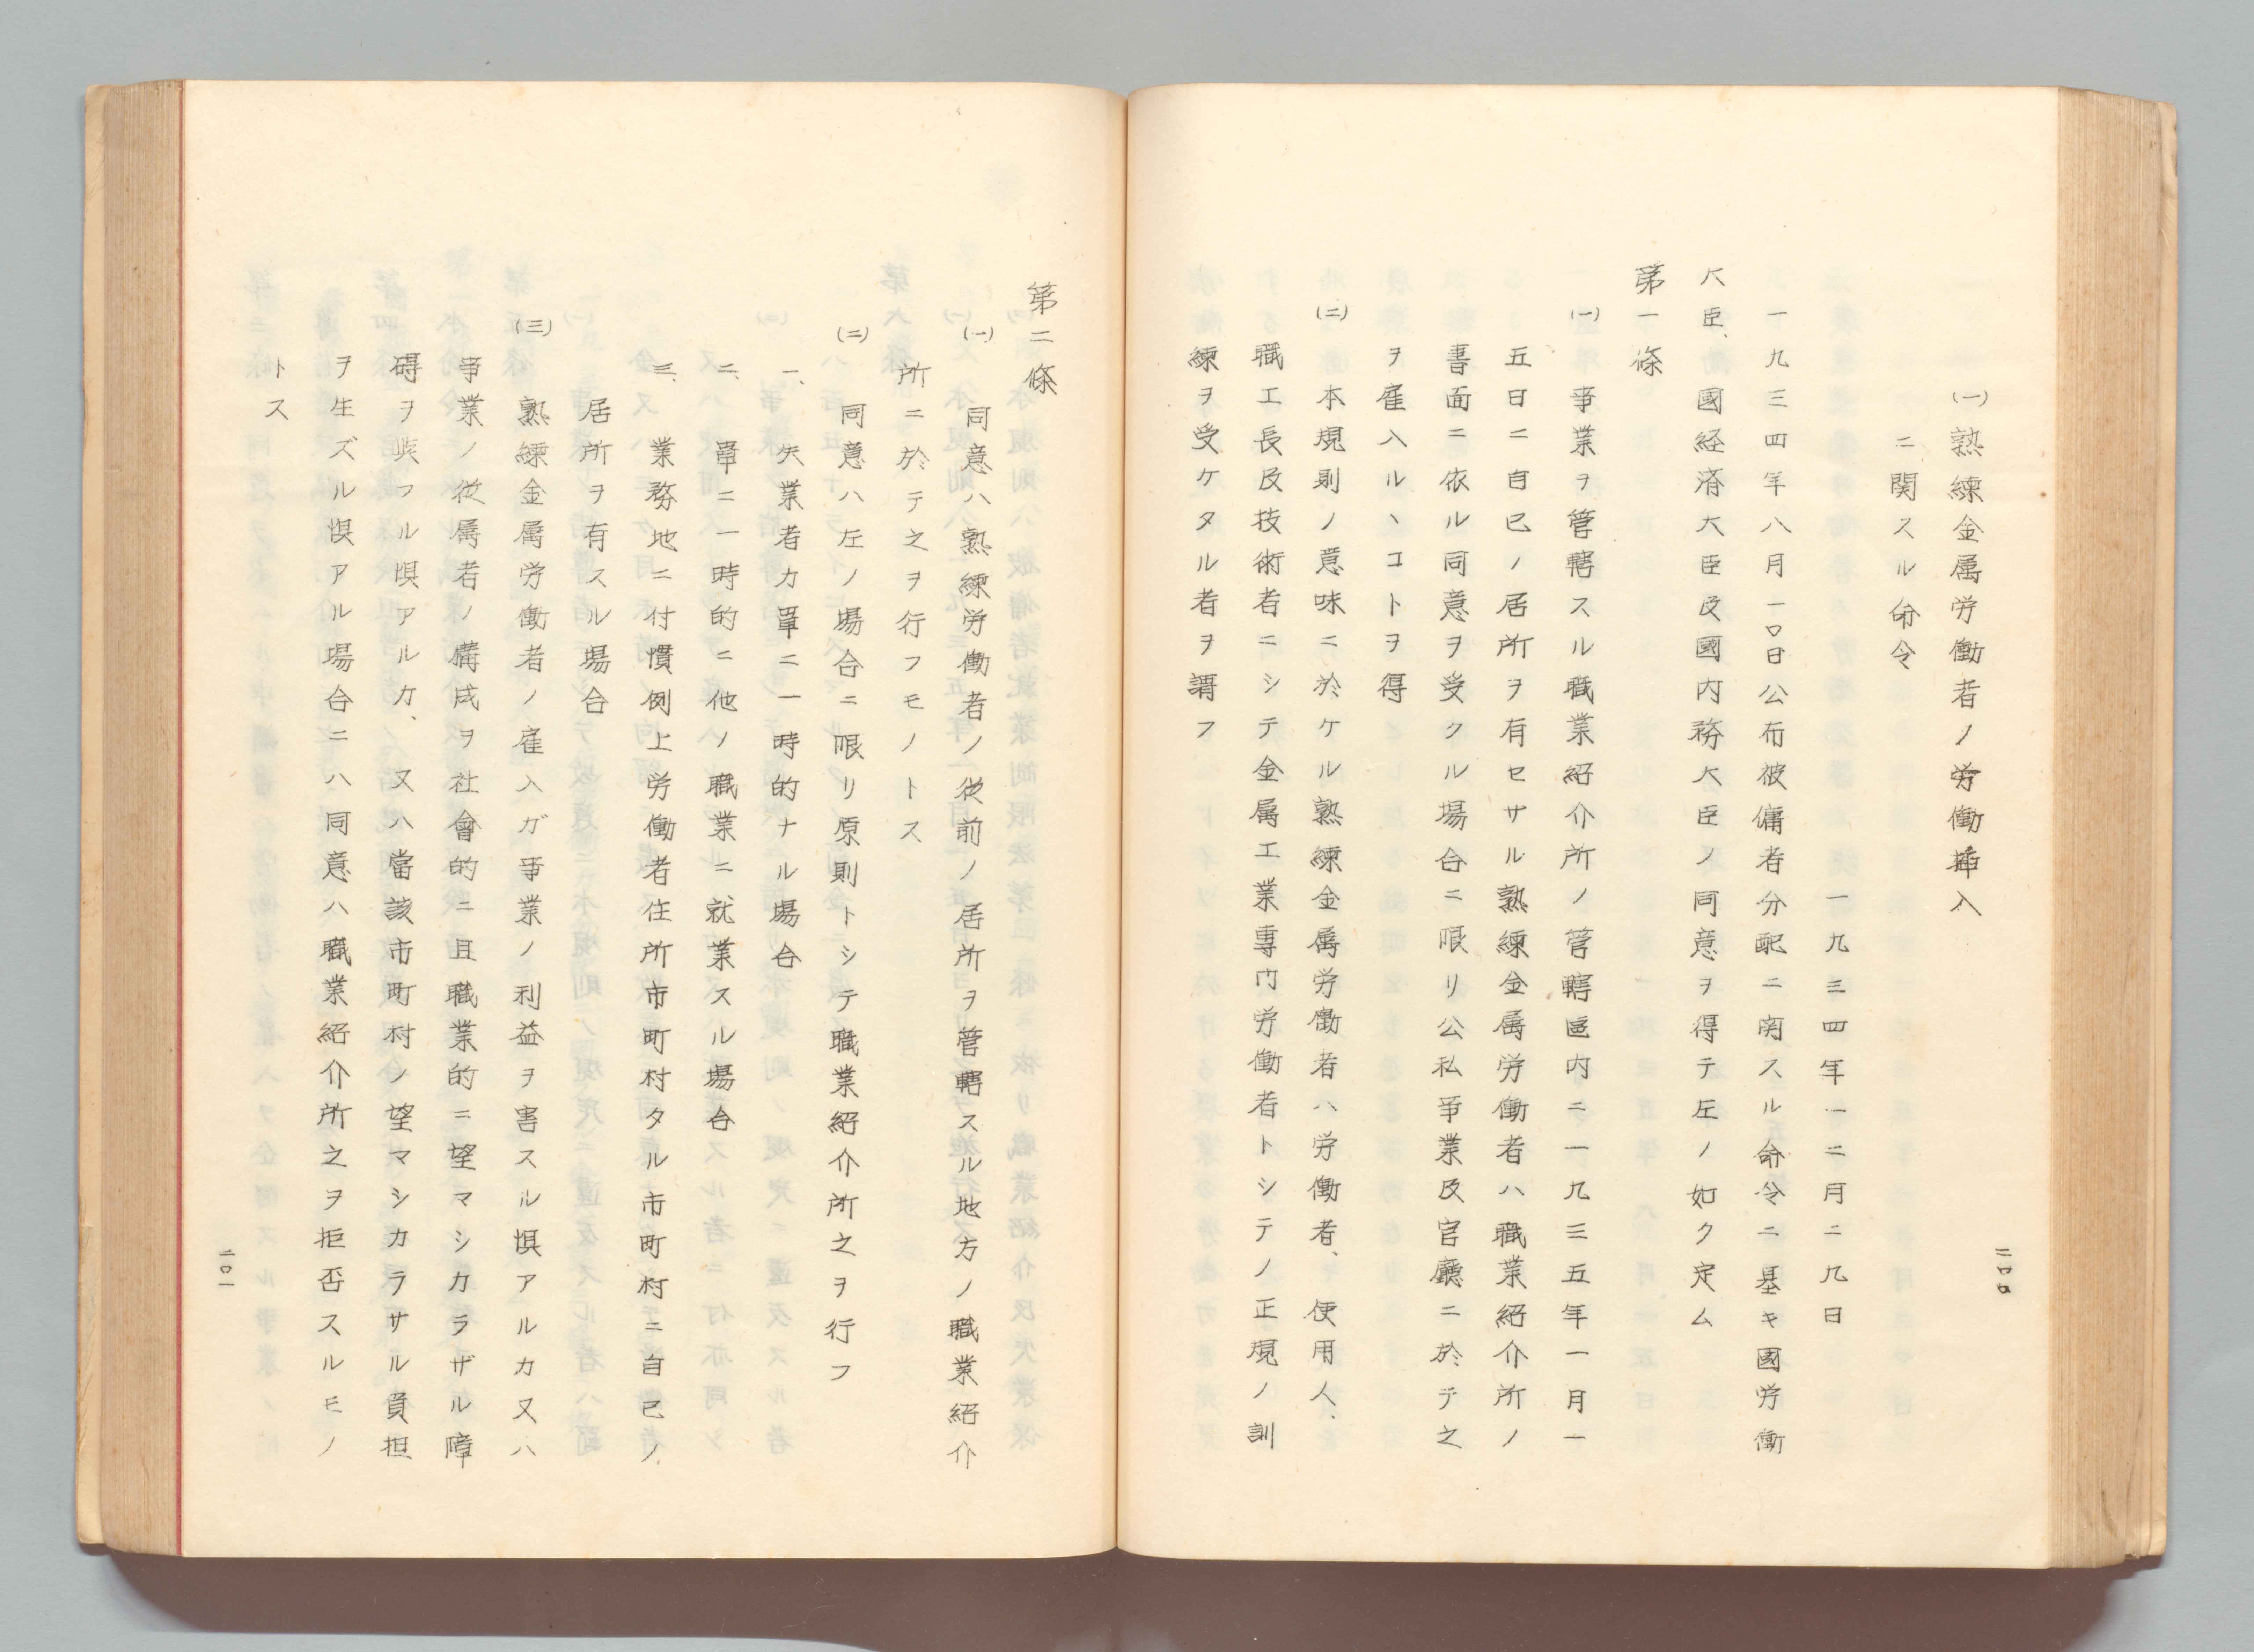 (一)熟練金属労働者ノ労働挿入
ニ関スル命令
一九三四年一二月二九日
一九三四年八月一〇日公布被傭者分配ニ関スル命令ニ基キ國労働
大臣、國経済大臣及國内務大臣ノ同意ヲ得テ左ノ如ク定ム
第一條
(一)事業ヲ管轄スル職業紹介所ノ管轄區内ニ一九三五年一月一
五日ニ自己ノ居所ヲ有セサル熟練金属労働者ハ職業紹介所ノ
書面ニ依ル同意ヲ受クル場合ニ限リ公私事業及官廳ニ於テ之
ヲ雇入ルヽコトヲ得
(二)本規則ノ意味ニ於ケル熟練金属労働者ハ労働者、使用人、
職工長及技術者ニシテ金属工業専门労働者トシテノ正規ノ訓
練ヲ受ケタル者ヲ謂フ
二〇〇
第二條
(一)同意ハ熟練労働者ノ従前ノ居所ヲ管轄スル地方ノ職業紹介
所ニ於テ之ヲ行フモノトス
(二)同意ハ左ノ場合ニ限リ原則トシテ職業紹介所之ヲ行フ
一、失業者カ単ニ一時的ナル場合
二、単ニ一時的ニ他ノ職業ニ就業スル場合
三、業務地ニ付慣例上労働者住所市町村タル市町村ニ自己ノ
居所ヲ有スル場合
(三)熟練金属労働者ノ雇入ガ事業ノ利益ヲ害スル惧アルカ又ハ
事業ノ従属者ノ構成ヲ社會的ニ且職業的ニ望マシカラザル障
碍ヲ與フル惧アルカ、又ハ當該市町村ノ望マシカラサル負担
ヲ生ズル惧アル場合ニハ同意ハ職業紹介所之ヲ拒否スルモノ
トス
二〇一